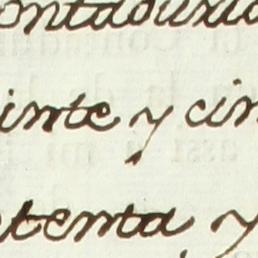 ontaduria
inte y cin
etenta y